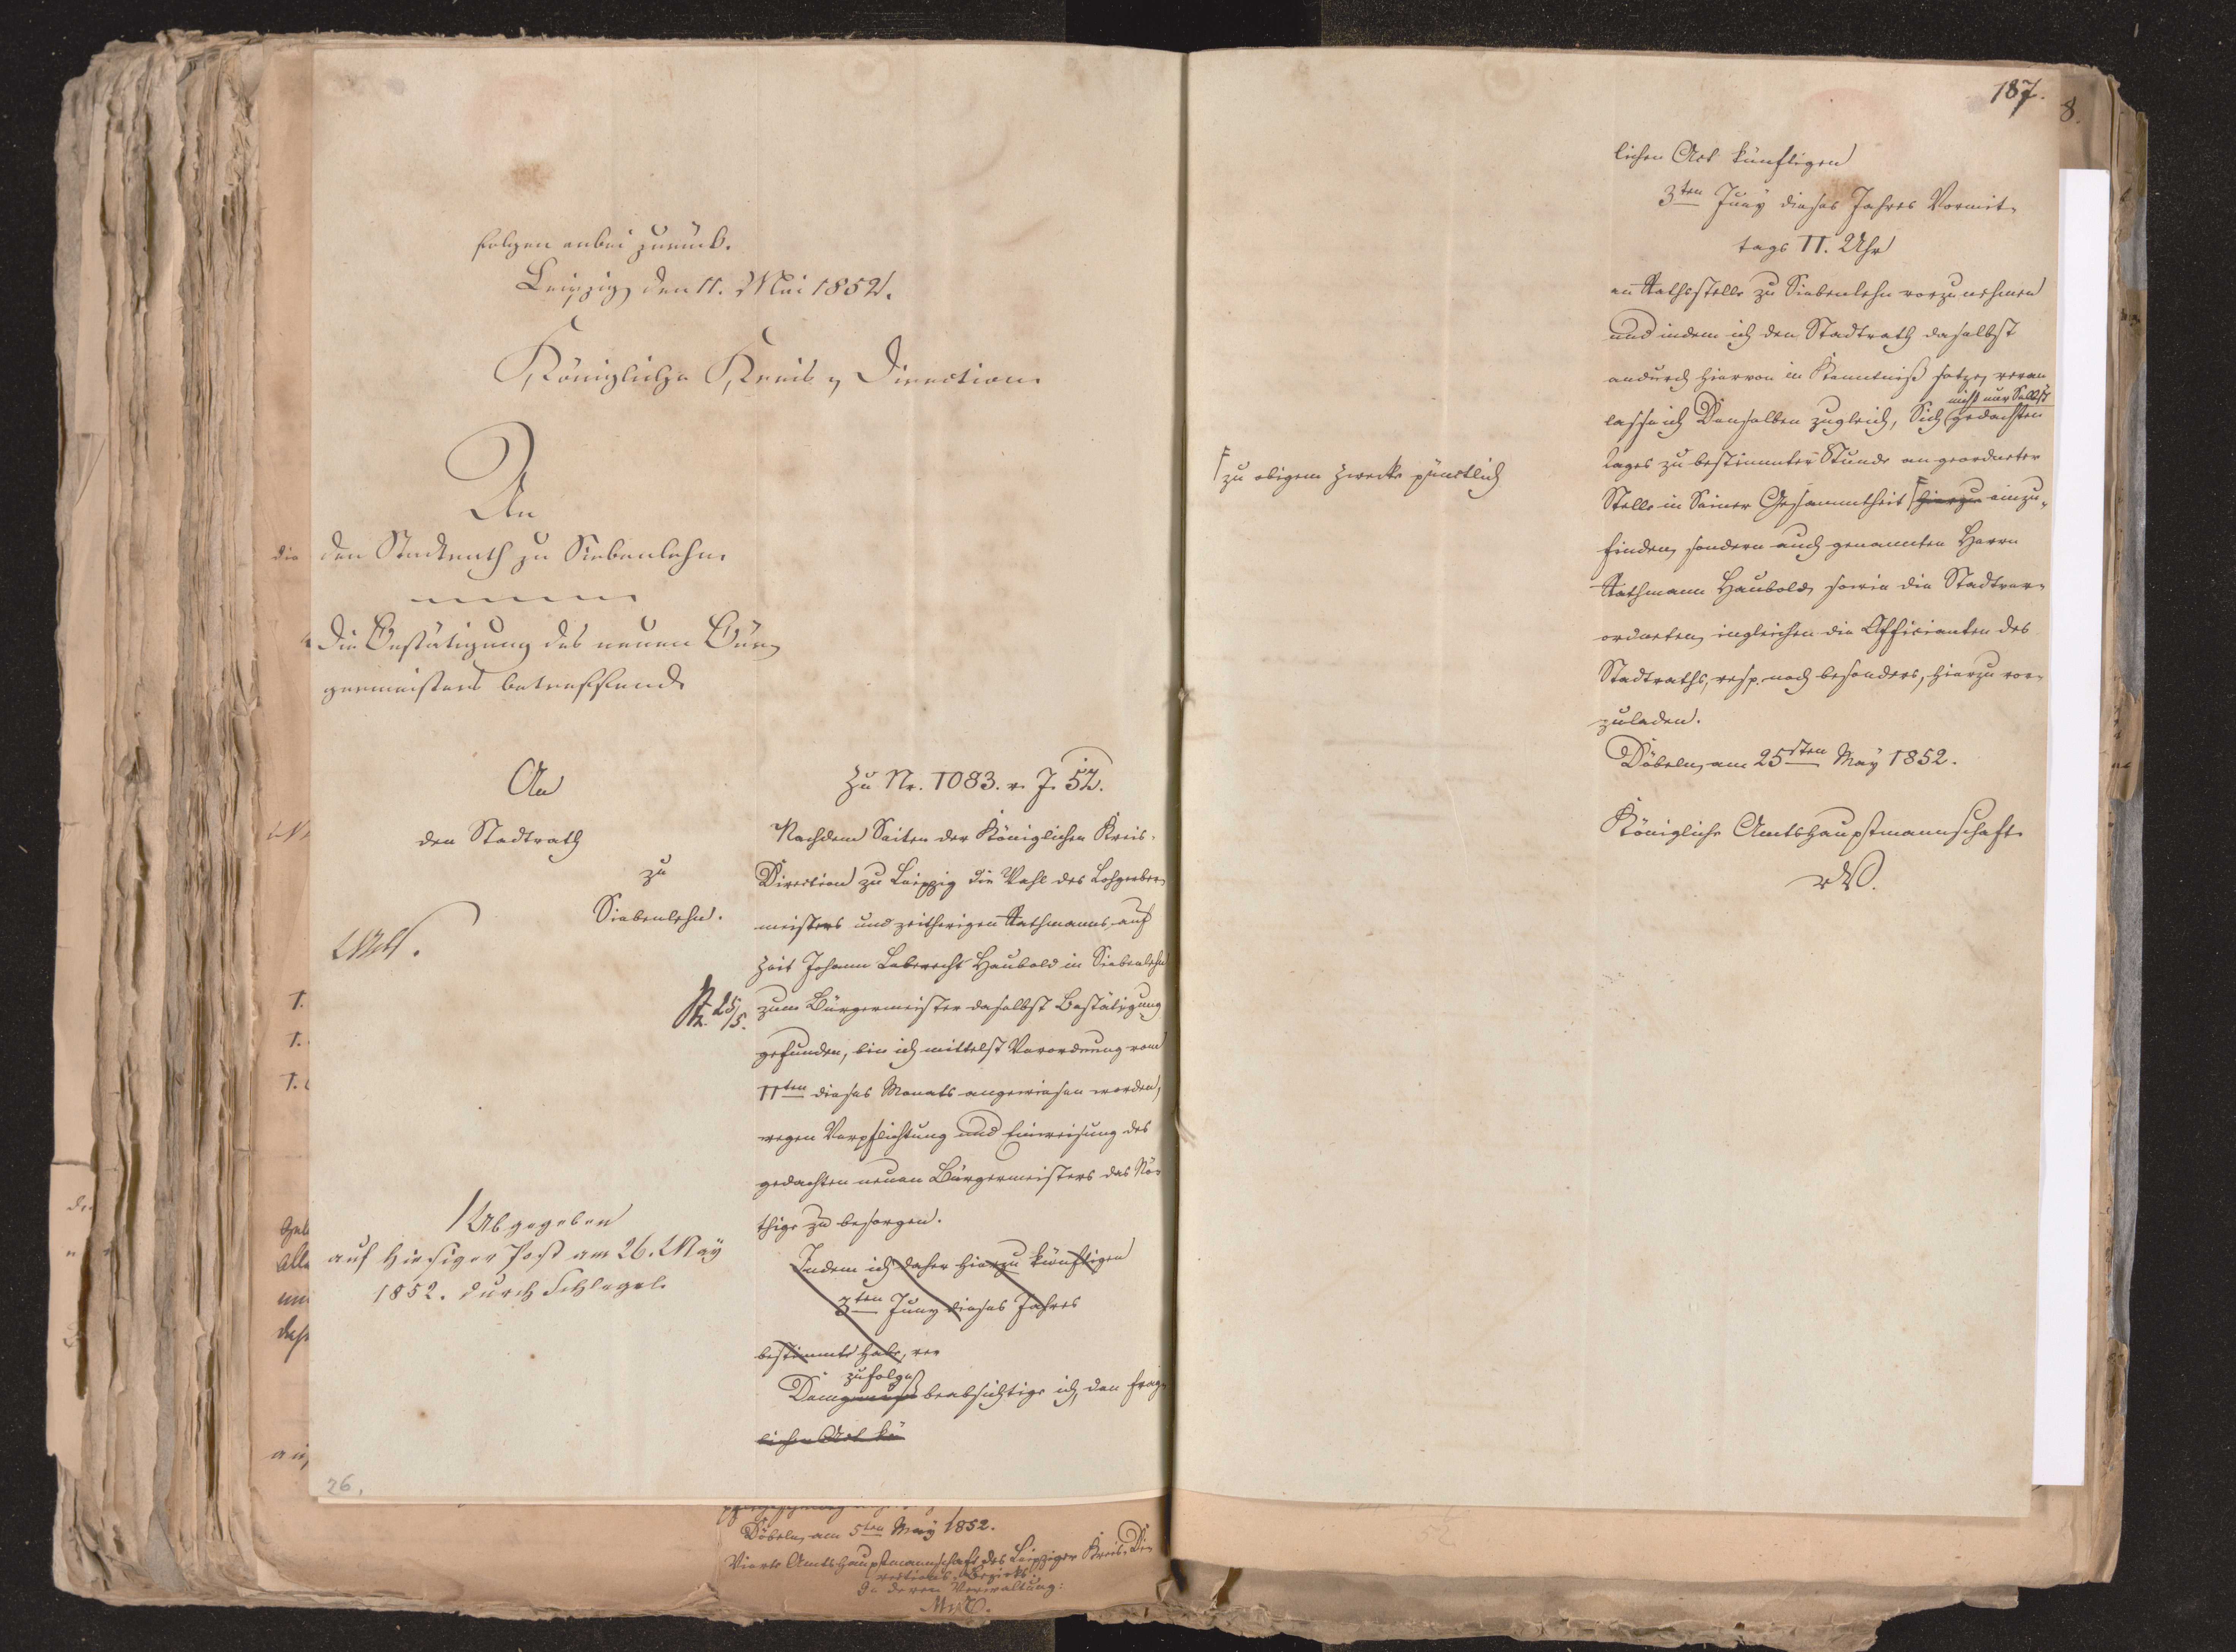 folgen anbei zurück.
Leipzig, den 11. Mai 1852.
Königliche Kreis-Direction.
An
den Stadtrath zu Siebenlehn.
Die Bestätigung des neuen Bür-
germeisters betreffend.
An
den Stadtrath
zu
Siebenlehn.
25/5.
Abgegeben
auf hiesiger Post am 26. May
1852. durch Schlegel.
26.
Zu Nr. 1083. v. J. 52.
Nachdem Seiten der Königlichen Kreis-
Direction zu Leipzig die Wahl des Lohgerber-
meisters und zeitherigen Rathmanns auf
Zeit Johann Leberecht Haubold in Siebenlehn
zum Bürgermeister daselbst Bestätigung
gefunden, bin ich mittelst Verordnung vom
11ten dieses Monats angewiesen worden,
wegen Verpflichtung und Einweisung des
gedachten neuen Bürgermeisters das Nö-
thige zu besorgen.
Indem ich daher hierzu künftigen
3ten Juny dieses Jahres
bestimmt habe, ver
zufolge
Demgemäß beabsichtige ich, den frag-
lichen Act kü
Döbeln, am 5ten May 1852.
Vierte Amtshauptmannschaft des Leipziger Kreis-Di-
rections-Bezirks.
In deren Verwaltung:
187.
8.
lichen Act künftigen
3ten Juny dieses Jahres Vormit-
tags 11. Uhr
an Rathsstelle zu Siebenlehn vorzunehmen
und indem ich den Stadtrath daselbst
andurch hiervon in Kenntniß setze, veran-
nicht nur Selbst
lasse ich Denselben zugleich, Sich gedachten
Tages zu bestimmter Stunde an geordneter
Stelle in Seiner Gesammtheit hierzu einzu-
zu obigem Zwecke pünctlich
finden, sondern auch genannten Herrn
Rathmann Haubold, sowie die Stadtver-
ordneten, ingleichen die Officianten des
Stadtraths, resp. noch besonders, hierzu vor-
zuladen.
Döbeln, am 25sten May 1852.
Königliche Amtshauptmannschaft.